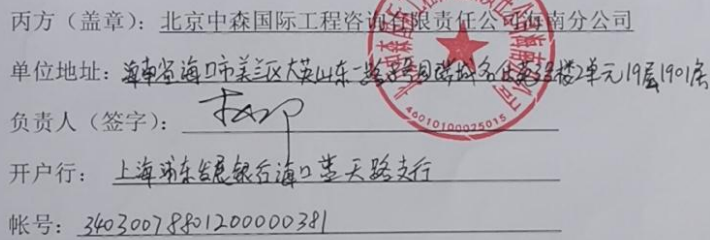 丙方（盖章）：北京中森国际工程咨询有限责任公司海南分公司
单位地址：海南省海口市美兰区大英山东一路 国 城名仕 楼2单元19层1901房
负责人（签字）：
开户行：上海浦东发展银行海口蓝天路支行
帐号：34030078801200000381
46010100025015